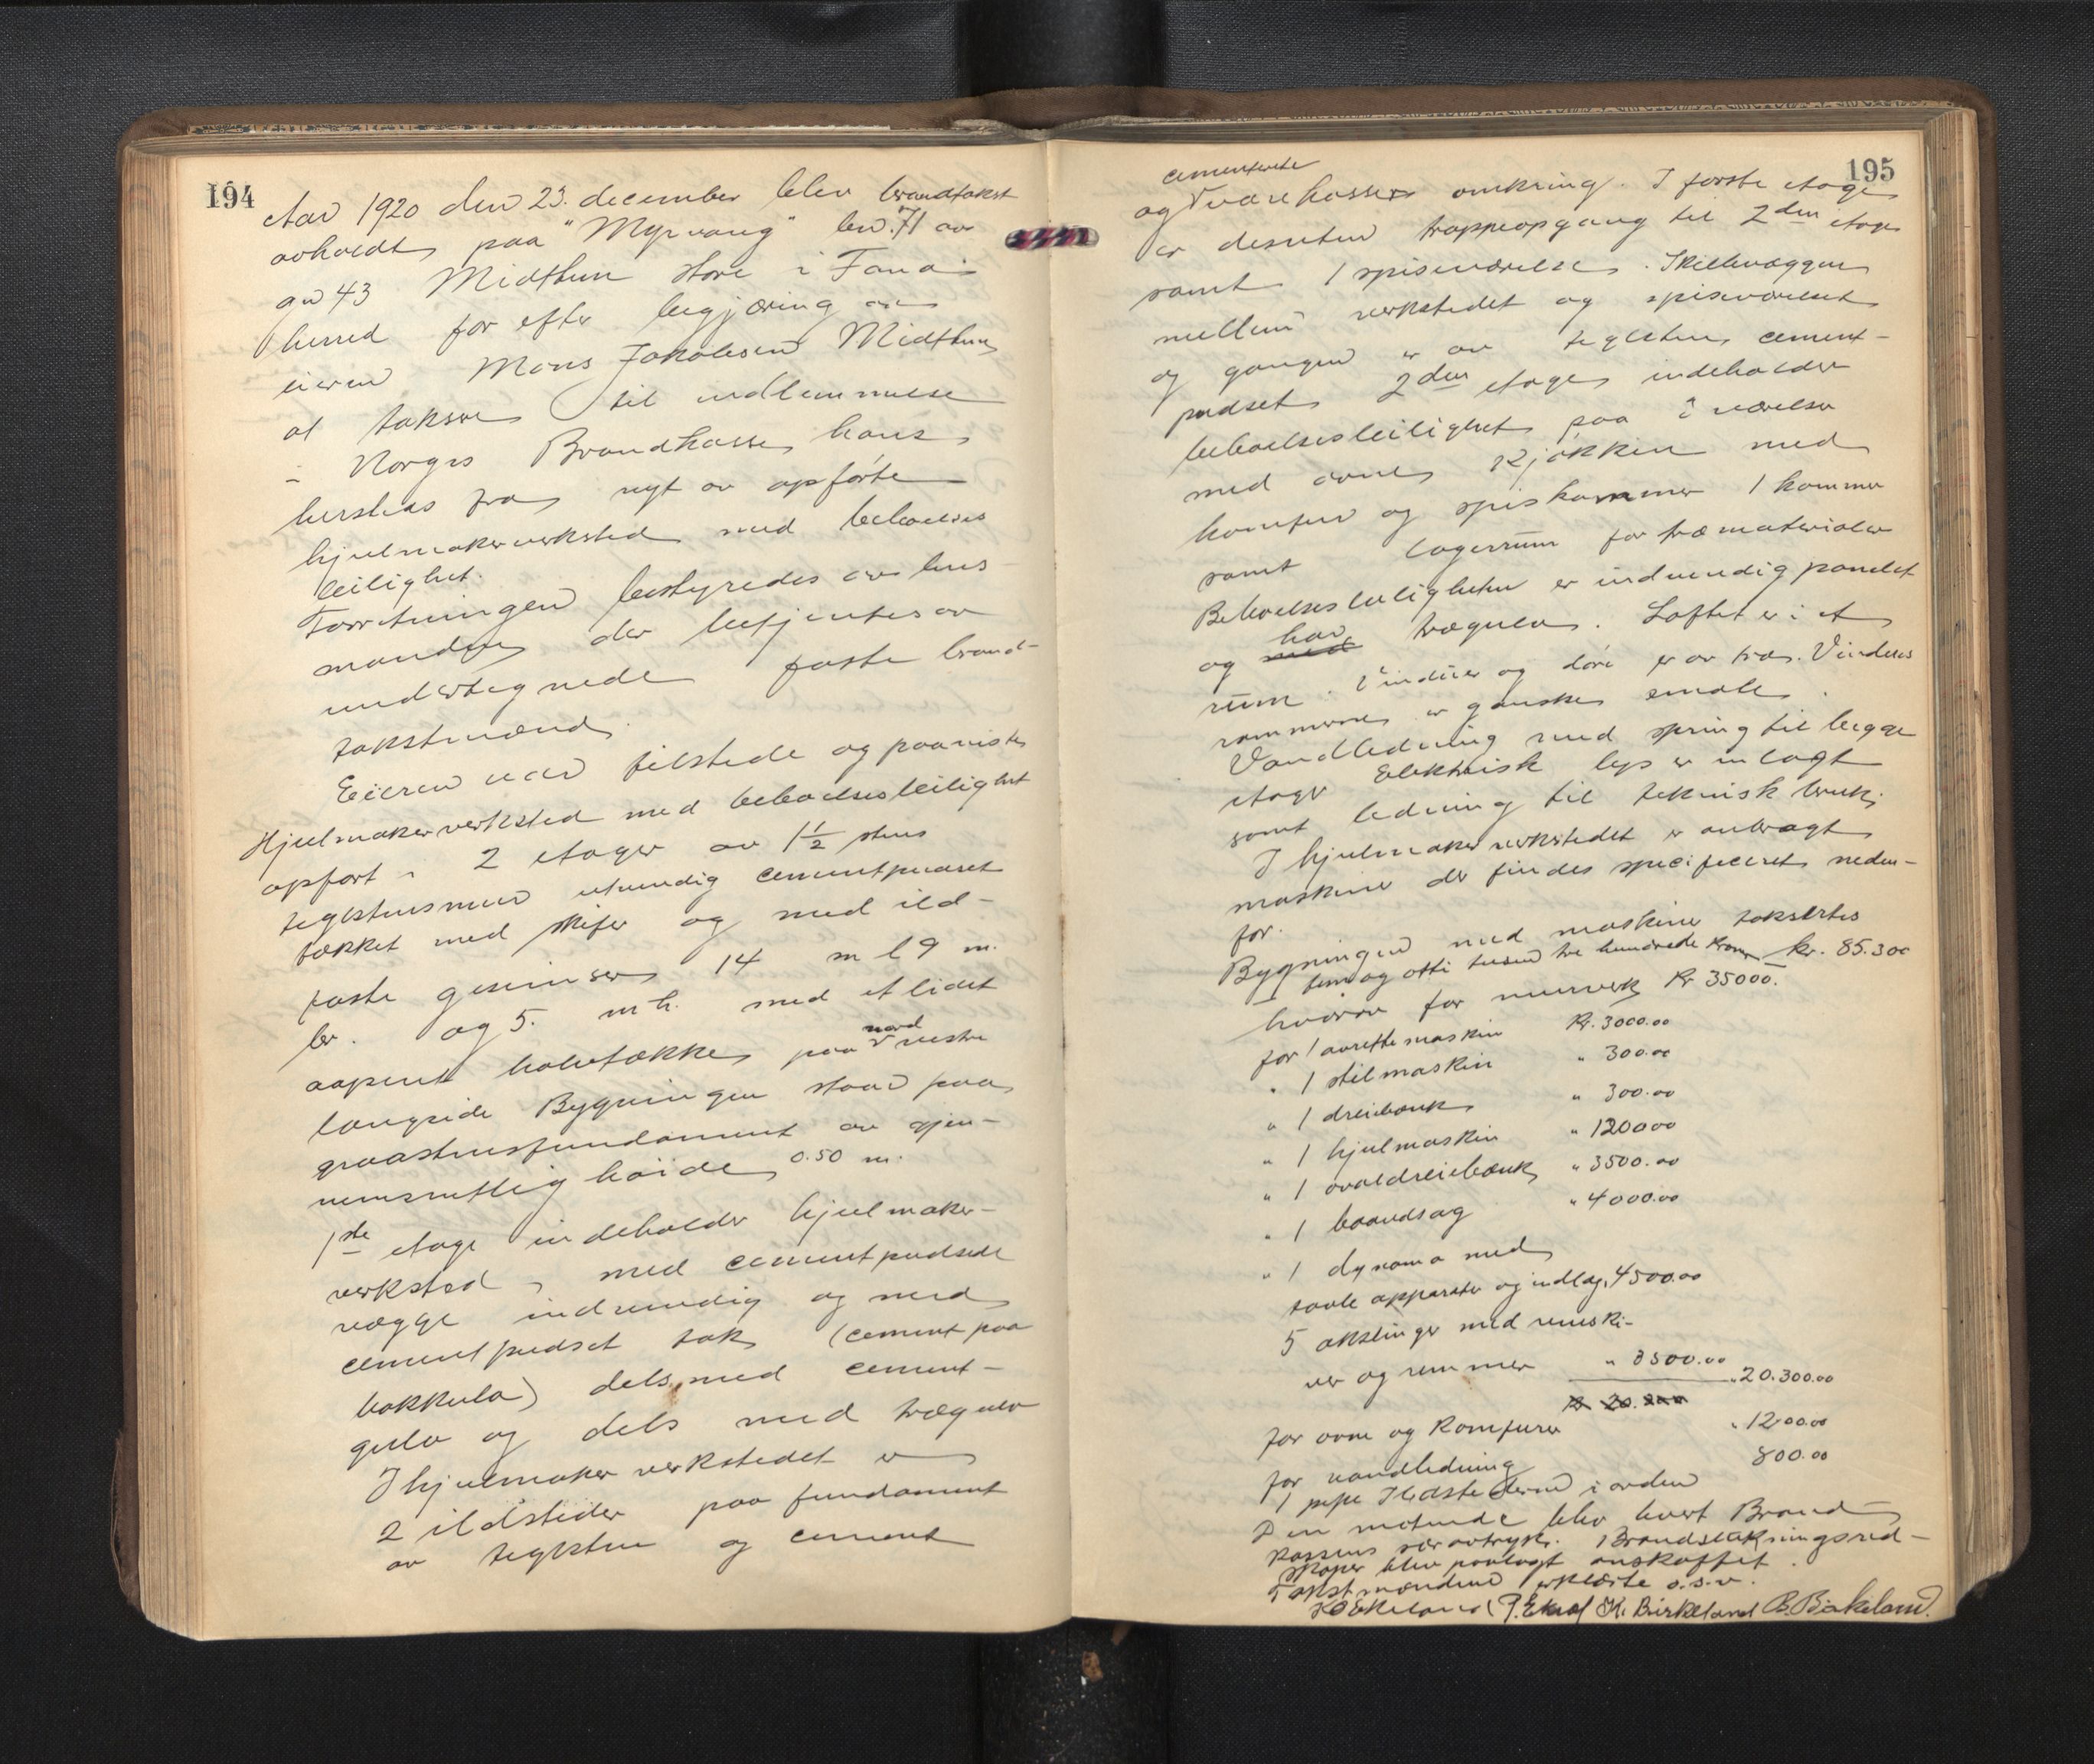 194
Aar 1920 den 23. december blev brandtakst
avholdt paa "Myrvang" bn. 71 av
gn 43 Midthun store i Fana
herred for efter begjæring av
eieren Mons Jakobsen Midthun
at taksere til indlemmelse
i Norges Brandkasse hans
hersteds fra nyt av opførte
hjulmakerverksted med beboelses
leilighet.
Forretningen bestyredes av lens
manden der betjentes av
undertegnede faste brand-
takstmænd.
Eieren var tilstede og paaviste
Hjulmakerverksted med beboelsesleilighet
opført i 2 etager av 1½ stens
teglstensmur utvendig cementpudset
tækket med skifer og med ild-
faste gesimser 14 m l 9 m.
br. og 5. m h. med et lidet
aapent halvtække paa nord vestre
langside Bygningen staar paa
graastensfundament av gjen-
nemsnitlig høide 0.50 m.
1ste etage indeholder hjulmaker-
verksted, med cementpudsede
vægge indvendig og med
cementpudset tak (cement paa
bakkula) dels med cement-
gulv og dels med trægulv
I hjulmakerverkstedet er
2 ildsteder paa fundament
av teglsten og cement
195
cementerte
og murekasser omkring. I første etage
er desuten trappeopgang til 2den etage
samt 1 spiseværelse. Skillevæggen
mellem verkstedet og spiseværelset
og gangen er av teglsten, cement-
pudset 2den etage indeholder
beboelsesleilighet paa 2 værelser
med ovne, kjøkken med
komfur og spiskammer 1 kammer
samt lagerrum for træmaterialer
Beboelsesleiligheten er indvendig panelet
og med har trægulv. Loftet er i et
rum. Vinduer og døre er av træ. Vindues
rammerne er ganske smale.
Vandledning med spring til begge
etager Elektrisk lys er inlagt
samt ledning til teknisk bruk.
I hjulmakerverkstedet er anbragt
maskiner der findes specificeret neden-
for.
Bygningen med maskiner taksertes
fem og otti tusen tre hundrede kroner kr. 85.300
hvorav for murverk Kr 35000.
for 1 avrettemaskin Kr. 3000.00
" 1 stilmaskin " 300.00
" 1 dreiebænk " 300.00
" 1 hjulmaskin " 1200.00
" 1 ovaldreiebænk " 3500.00
" 1 baandsag " 4000.00
" 1 dynamo med
tavle apparater og indlæg. 4500.00
5 akslinger med remski-
ver og remmer " 3500.00
" 20.300.00
Kr 20.300
for ovne og komfurer " 1200.00
for vandledning 800.00
1 pipe Ildstederne i orden
Den møtende blev levert Brand
kassens særavtryk. Brandslukningsred-
skaper blev paalagt anskaffet.
Takstmændene erklærte o.s.v.
K. Birkeland B. Birkeland.